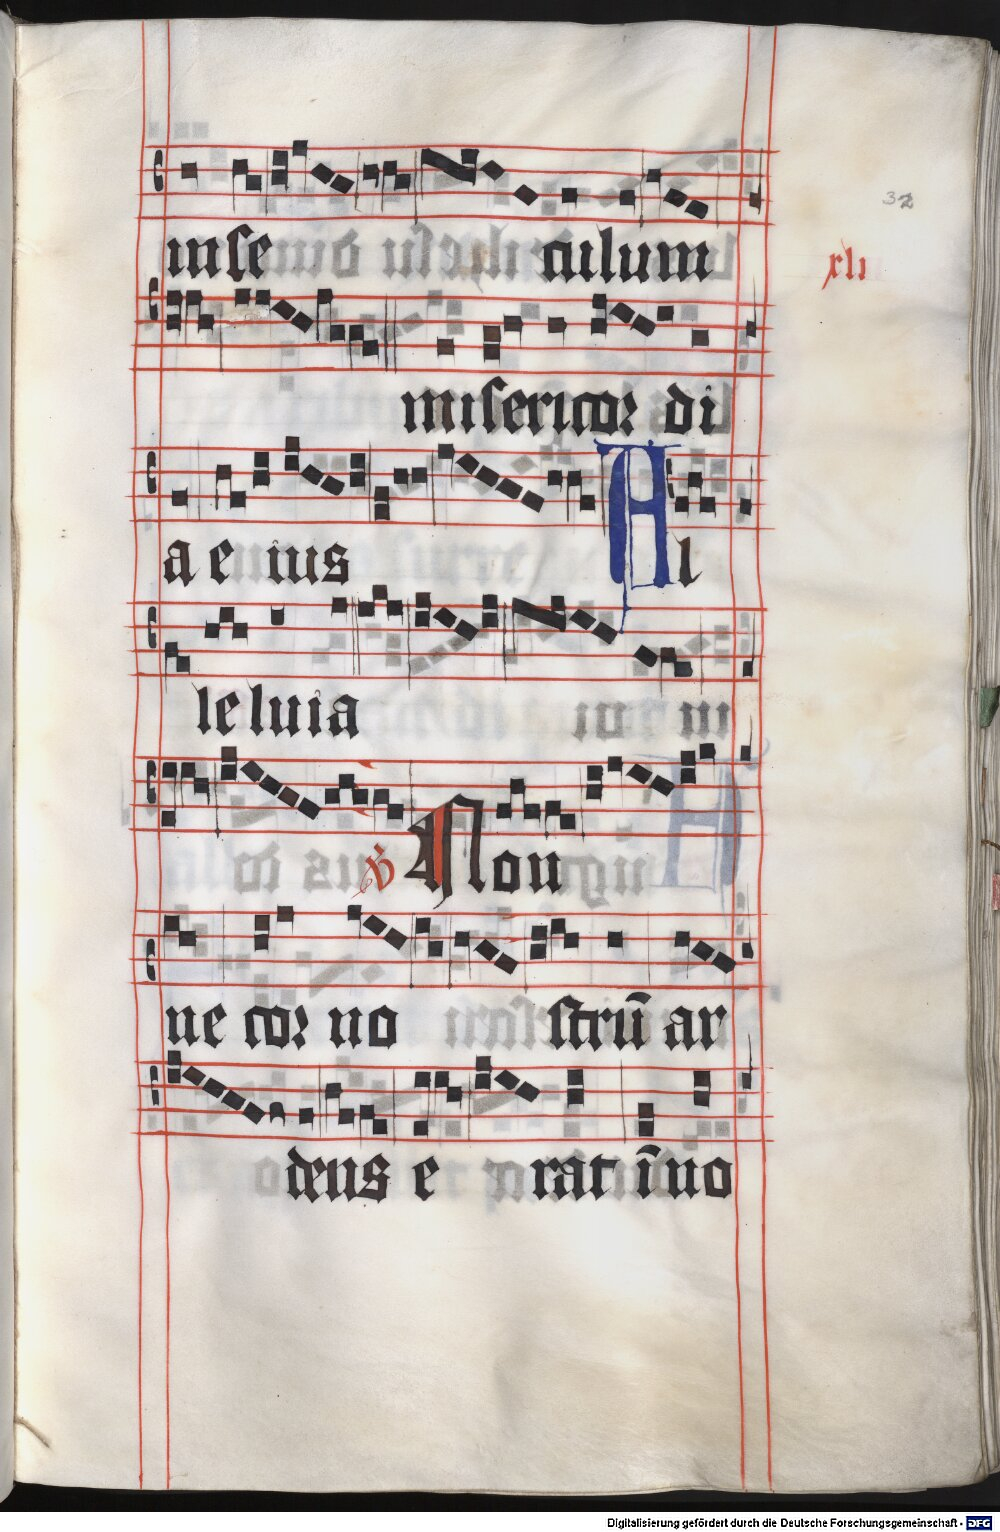 32
inse culum
xli
misericor di
a eius Al
leluia
℣ Non
ne cor no strū ar
dens e rat ī no
Digitalisierung gefördert durch die Deutsche Forschungsgemeinschaft - DFG